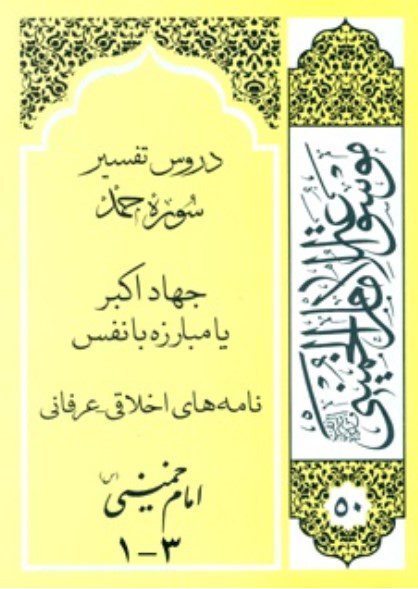 دروس تفسیر
سوره حمد
جهاد اکبر
یا مبارزه با نفس
نامه‌های اخلاقی ـ عرفانی
امام خمینی (س)
۱-۳
موسوعة الإمام الخميني
۵۰